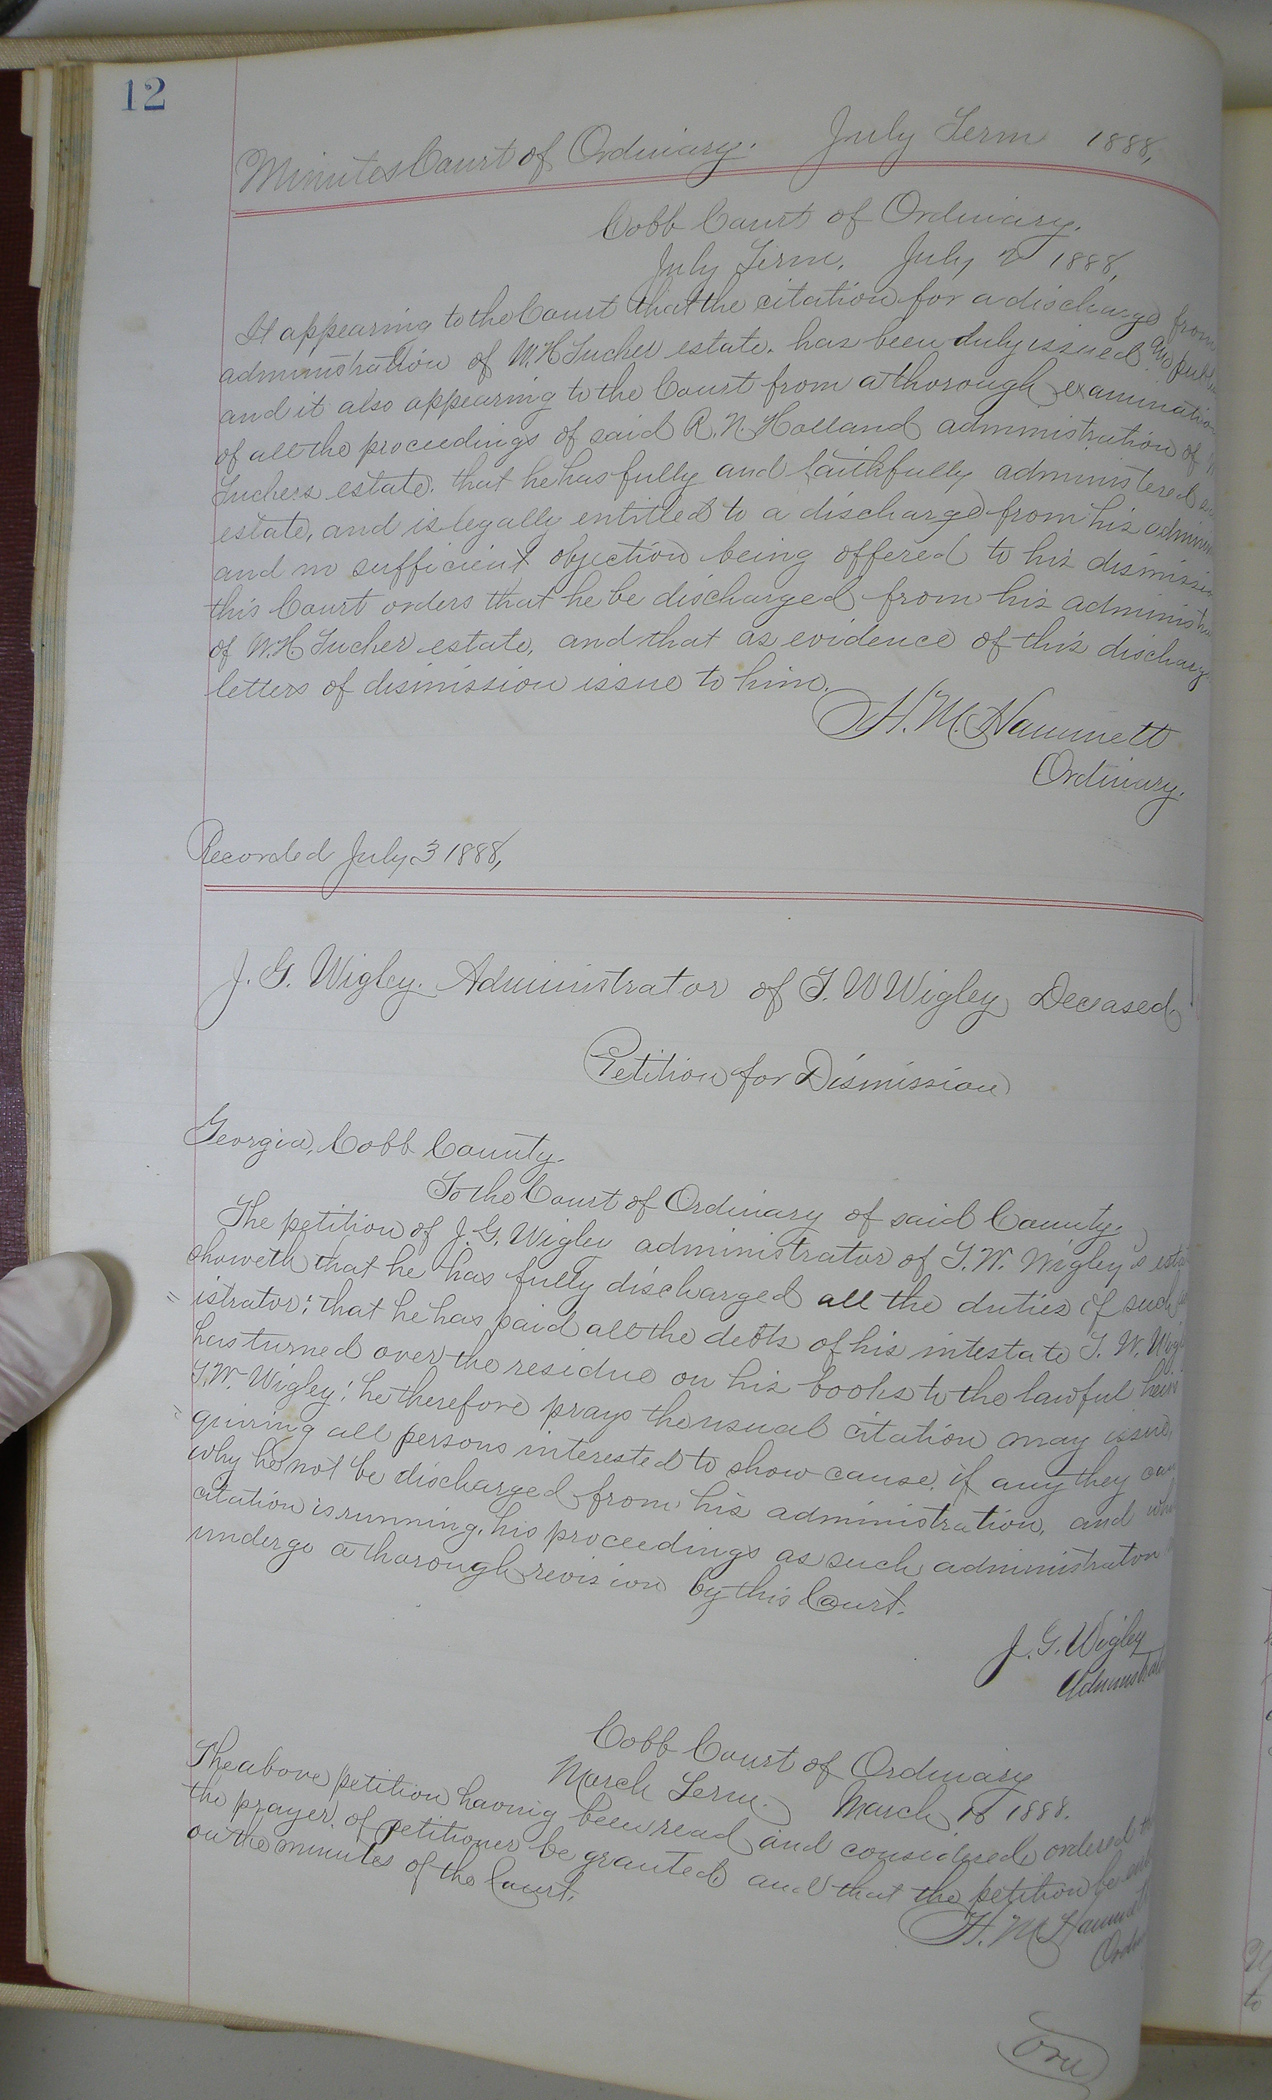 12
Minutes Court of Ordinary. July Term 1888,
Cobb Court of Ordinary.
July Term, July 2 1888,
It appearing to the Court that the citation for a discharge from
administration of W.H Tucker estate. has been duly issued and
and it also appearing to the Court from a thorough examination
of all the proceedings of said R. N. Holland administration of
Tuckers estate. that he has fully and faithfully administered
estate, and is legally entitled to a discharge from his
and no sufficient objection being offered to his
this Court orders that he be discharged from his
of W.H Tucker estate, and that as evidence of this
letters of dismission issue to him.
H. M. Hammett
Ordinary.
Recorded July 3 1888,
J. G. Wigley. Administrator of T. W Wigley Deceased
Petition for Dismission
Georgia, Cobb County.
To the Court of Ordinary of said County.
The petition of J. G. Wigley administrator of T. W. Wigley's
showeth that he has fully discharged all the duties of such
istrator: that he has paid all the debts of his intestate T. W.
has turned over the residue on his books to the lawful heirs
T. W. Wigley: he therefore prays the usual citation may issue,
quiring all persons interested to show cause, if any they can
why he not be discharged from his administration, and
citation is running, his proceedings as such administrator
undergo a thorough revision by this Court.
J. G. Wigley
Cobb Court of Ordinary
March Term. March 1888.
The above petition having been read and considered ordered
the prayer of petitioner be granted and that the petition be
on the minutes of the Court.
H. M
over